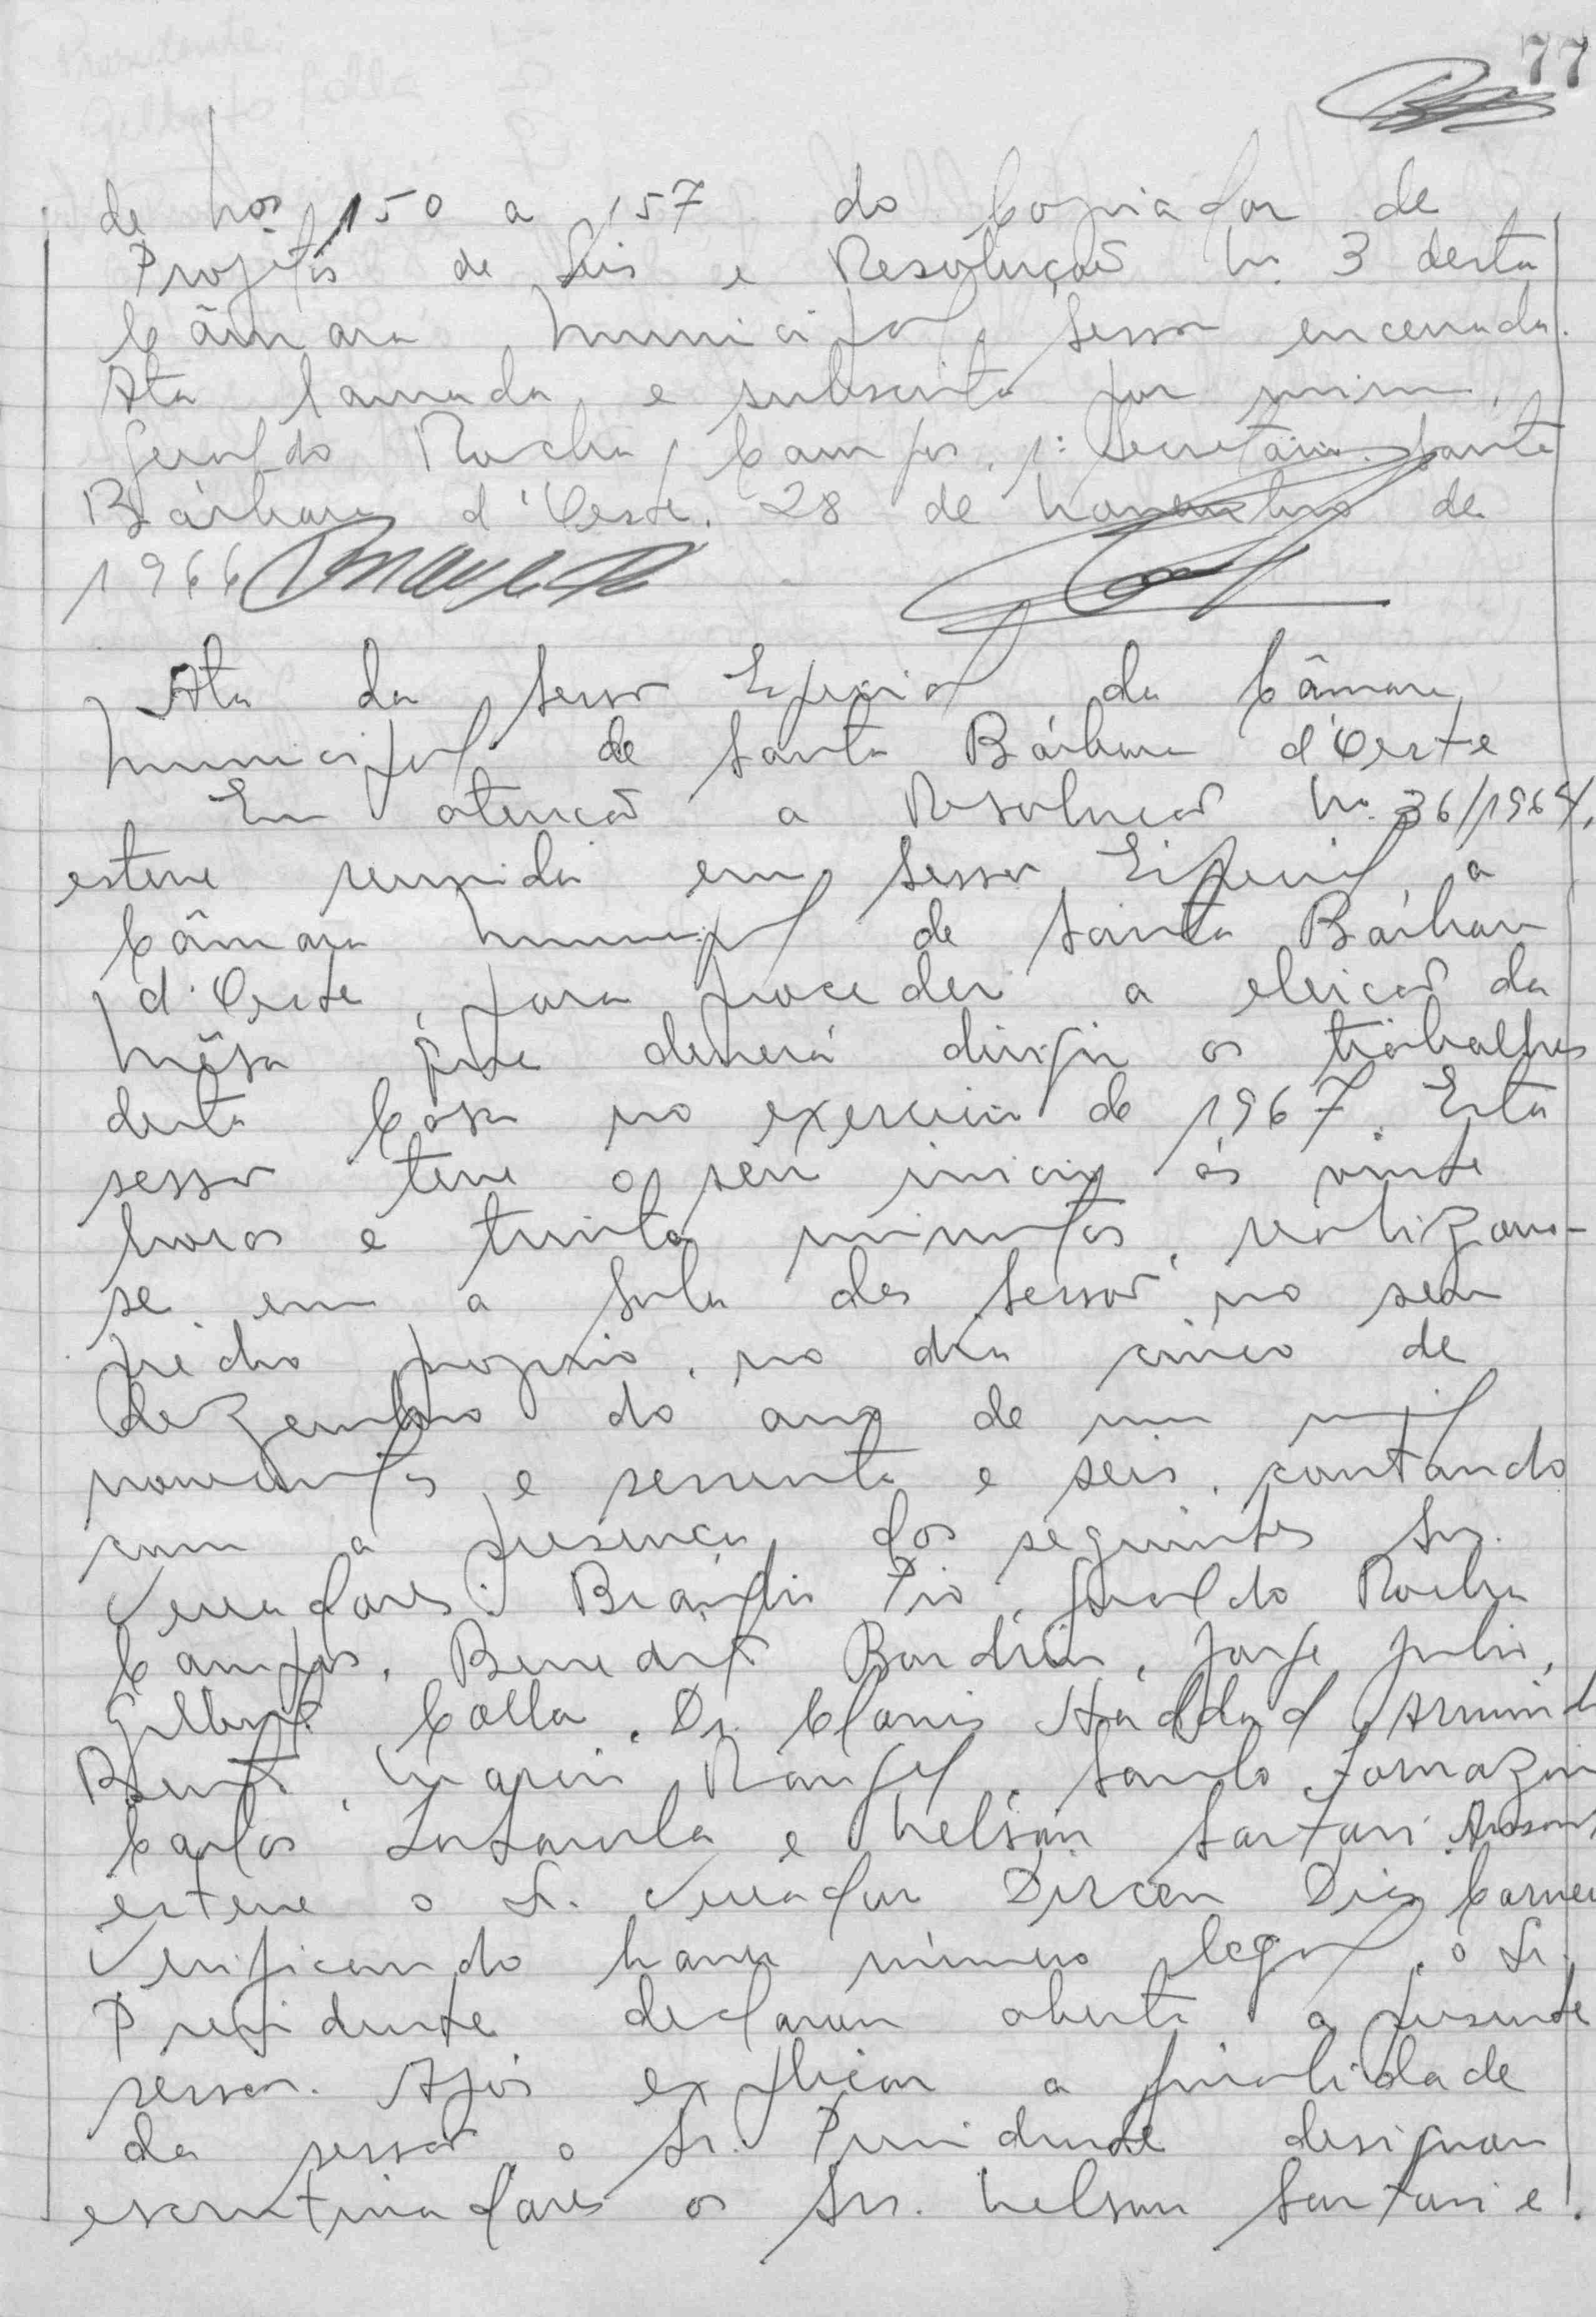 77
de Nos 150 a 157 do Copiador de
Projetos de Leis e Resolução No. 3 desta
Câmara Municipal, Sessão encerrada.
Ata lavrada e subscrita por mim,
Geraldo Rocha Campos, 1º Secretário. Santa
Bárbara d'Oeste, 28 de Novembro de
1966
Ata da Sessão Especial da Câmara
Municipal de Santa Bárbara d'Oeste
Em atenção a Resolução No. 36/1964,
esteve reunida em Sessão Especial, a
Câmara Municipal de Santa Bárbara
d'Oeste, para proceder a eleição da
Mêsa que deverá dirigir os trabalhos
desta Casa no exercício de 1967. Esta
sessão teve o seu inicio ás vinte
horas e trinta minutos, realizou-
se em a Sala das Sessão no seu
prédio proprio, no dia cinco de
dezembro do ano de um mil
novecentos e sessenta e seis, contando
com a presença dos seguintes Srs.
Vereadores: Bráulio Pio, Geraldo Rocha
Campos, Benedito Bordin, Jorge Julio,
Gilberto Colla, Dr. Clovis Haddad, Armindo
Bento, Marin Rangel, Santo Tomazin
Carlos e Nelson Sartori. Ausente
esteve o Sr. Vereador Dirceu Dias Carneiro
Verificando haver número legal, o Sr.
Presidente declarou aberta a presente
sessão. Após explicar a finalidade
da sessão, o Sr. Presidente designou
escrutinadores os Srs. Nelson Sartori e